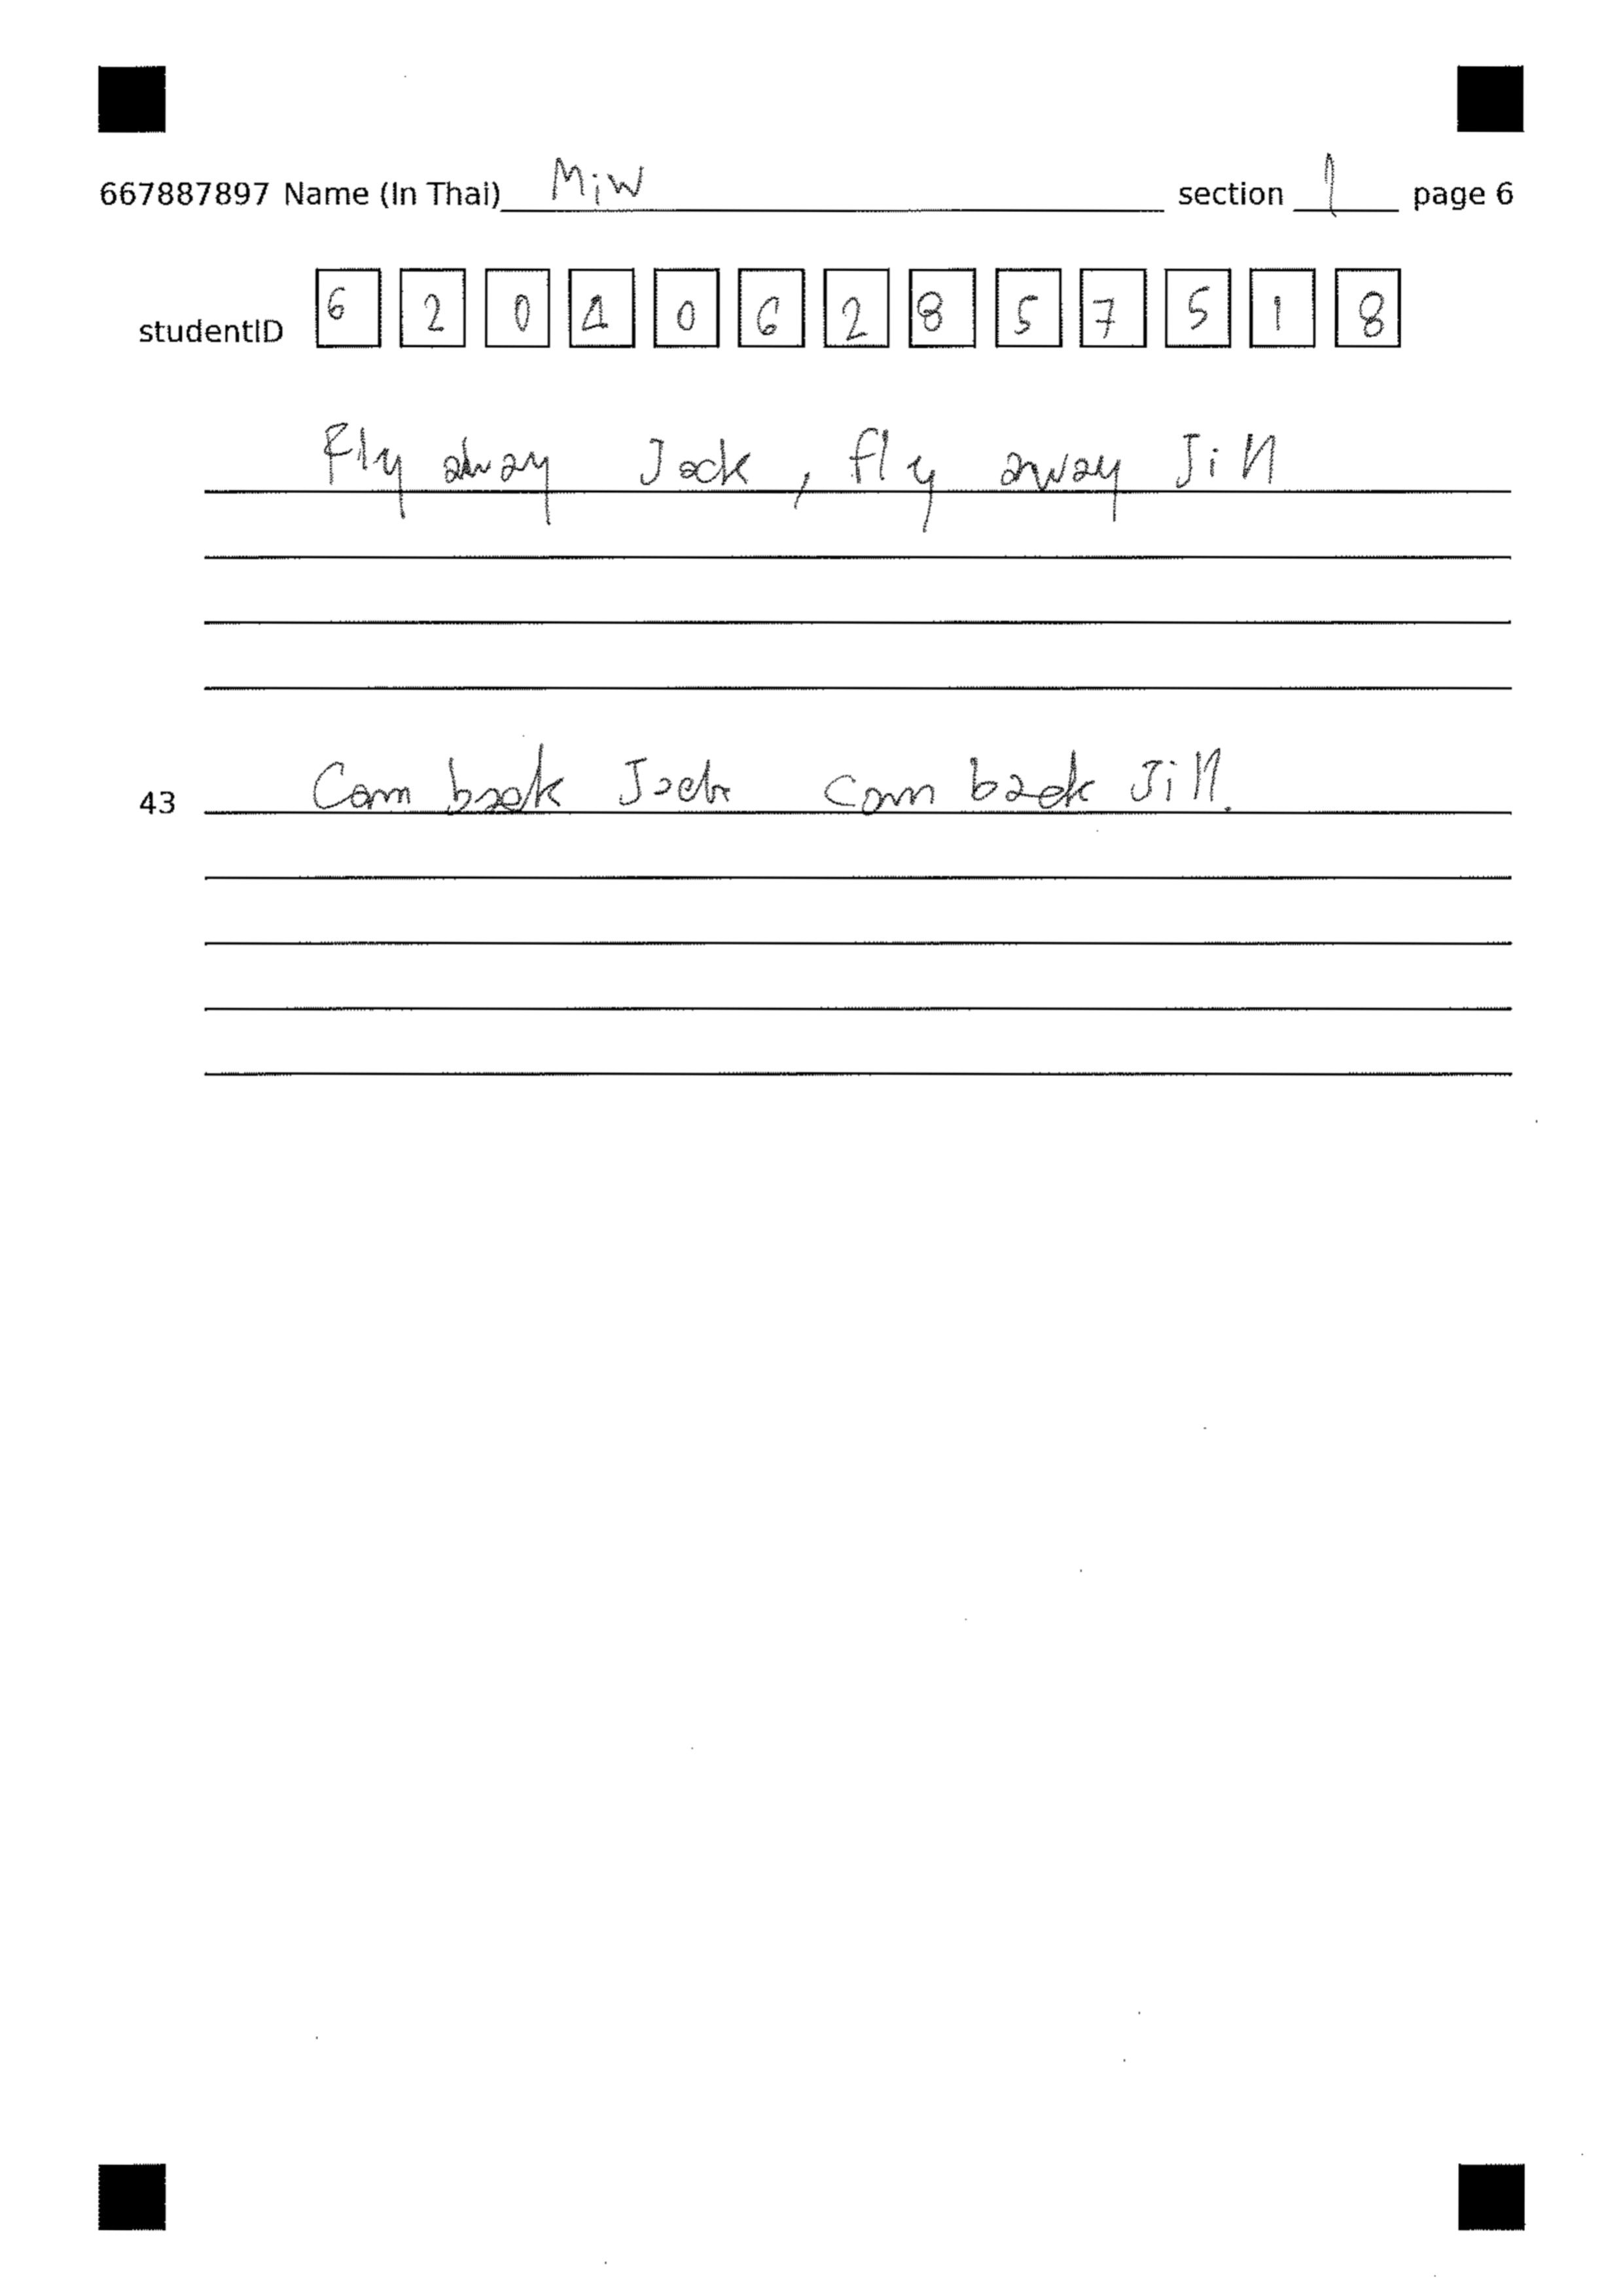 667887897 Name (In Thai) Miw section 1 page 6
studentID 6 2 0 4 0 6 2 8 5 7 5 1 8
Fly away Jack , fly away Jill
43 Com back Jack com back Jill.